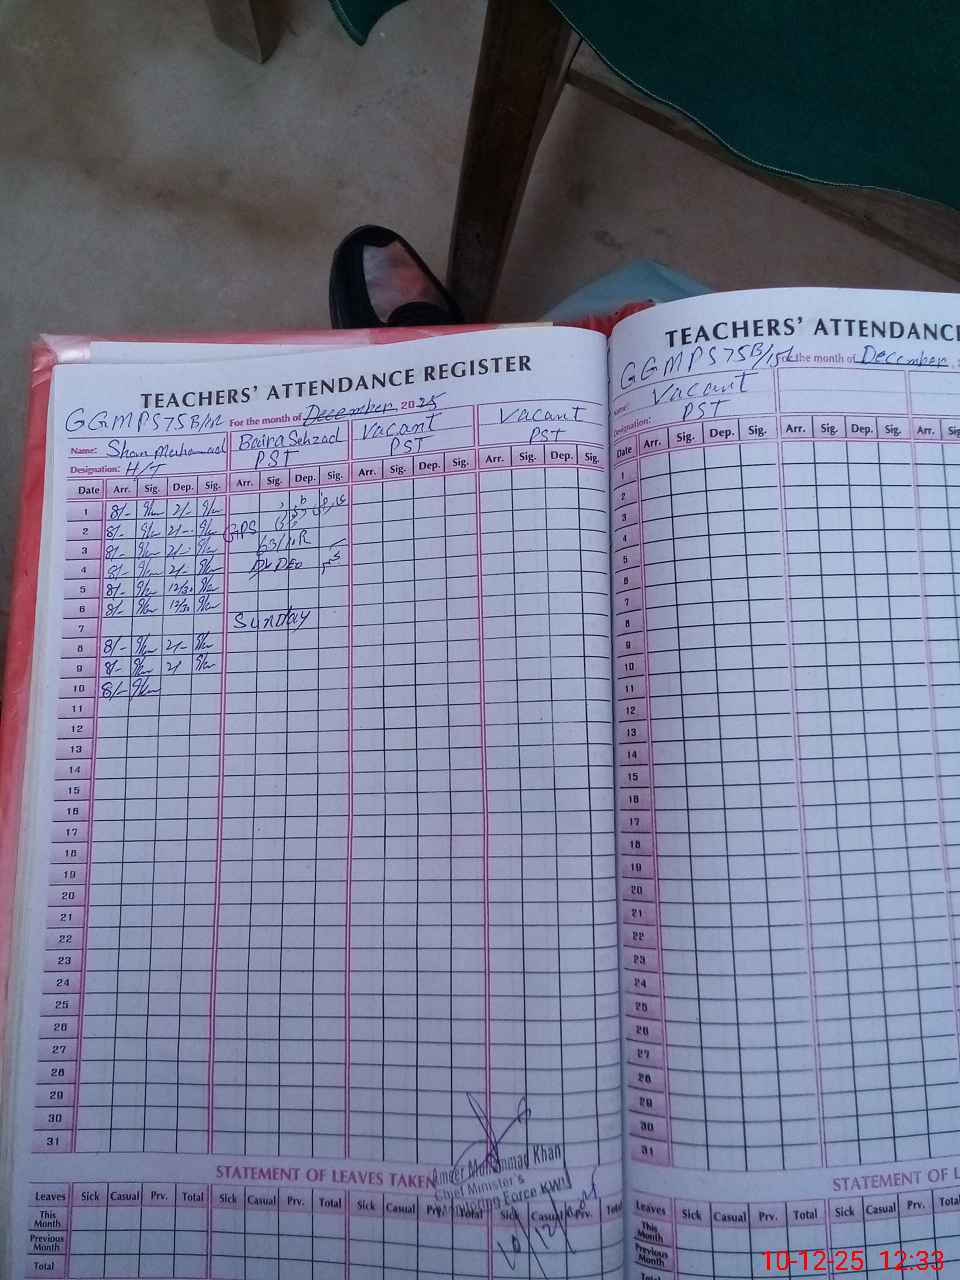 TEACHERS' ATTENDANCE REGISTER
GGMPS 75B/15L For the month of December, 2025
Name: Shan Muhammad Vacant Vacant
Designation: H/T PST PST PST
Date Arr. Sig. Dep. Sig. Arr. Sig. Dep. Sig. Arr. Sig. Dep. Sig. Arr. Sig. Dep. Sig.
1 8/- 2/-
2 8/- 2/- GPS
3 8/- 2/-
4 8/- 2/-
5 8/- 12/30
6 8/- 12/30
7 Sunday
8 8/- 2/-
9 8/- 2/
10 8/-
11
12
13
14
15
16
17
18
19
20
21
22
23
24
25
26
27
28
29
30
31
STATEMENT OF LEAVES TAKEN
Leaves Sick Casual Prv. Total Sick Casual Prv. Total Sick Casual Prv. Total Sick Casual Prv. Total
This Month
Previous Month
Total
Ameer Muhammad Khan
Chief Minister's
Monitoring Force KWL
10/12/
TEACHERS' ATTENDANCE
GGMPS 75B/15L For the month of December,
Name: Vacant
Designation: PST
Date Arr. Sig. Dep. Sig. Arr. Sig. Dep. Sig. Arr. Sig
1
2
3
4
5
6
7
8
9
10
11
12
13
14
15
16
17
18
19
20
21
22
23
24
25
26
27
28
29
30
31
STATEMENT OF L
Leaves Sick Casual Prv. Total Sick Casual Prv. Total
This Month
Previous Month
10-12-25 12:33